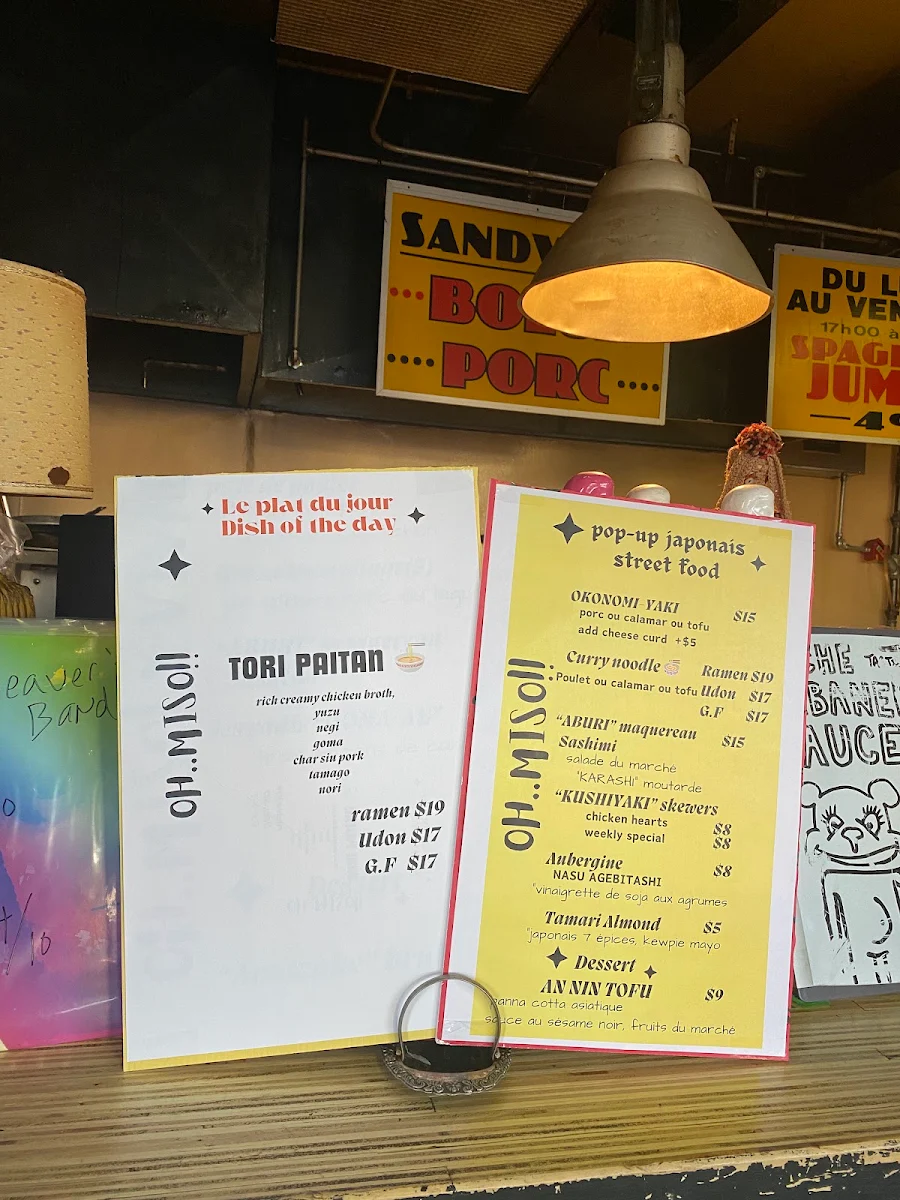 PORC
DU
17h00 à
Le plat du jour
Dish of the day
OH..MISO!!
TORI PAITAN
rich creamy chicken broth,
yuzu
negi
goma
char sin pork
tamago
nori
ramen $19
Udon $17
G.F $17
pop-up japonais
street food
OH..MISO!!
OKONOMI-YAKI $15
porc ou calamar ou tofu
add cheese curd +$5
Curry noodle Ramen $19
Poulet ou calamar ou tofu Udon $17
G.F $17
"ABURI" maquereau $15
Sashimi
salade du marché
"KARASHI" moutarde
"KUSHIYAKI" skewers
chicken hearts $8
weekly special $8
Aubergine $8
NASU AGEBITASHI
"vinaigrette de soja aux agrumes
Tamari Almond $5
"japonais 7 épices, kewpie mayo
Dessert
AN NIN TOFU $9
panna cotta asiatique
sauce au sésame noir, fruits du marché
Band